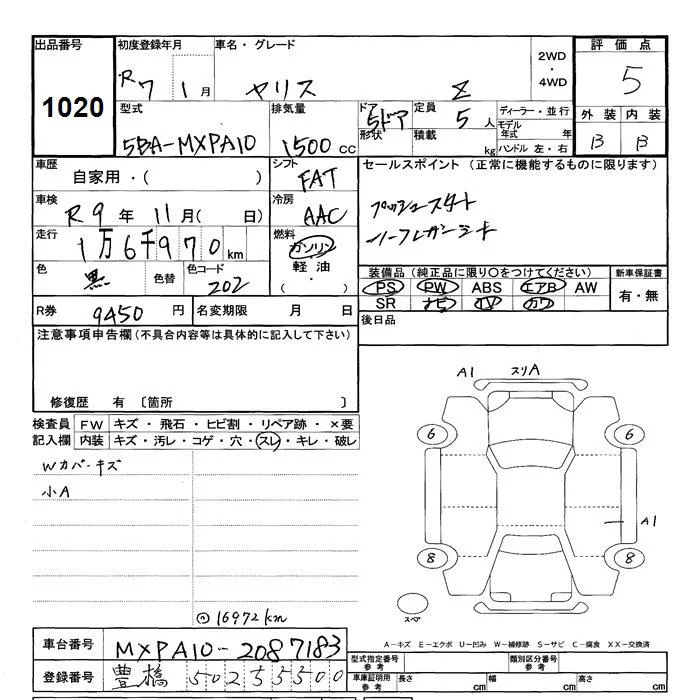 出品番号 初度登録年月 車名・グレード 2WD・4WD 評価点
1020 R7 1月 ヤリス Z 5
型式 排気量 ドア形状 定員 ディーラー・並行 外装 内装
5BA-MXPA10 1500cc 5ドア 5人 モデル年式 年 B B
積載 kg ハンドル 左・右
車歴 シフト セールスポイント (正常に機能するものに限ります)
自家用・( ) FAT
車検 冷房 プッシュスタート
R9年11月( 日) AAC ハーフレザーシート
走行 燃料
1万6千970km ガソリン
軽油
・( )
色 黒 色替 色コード 202
装備品 (純正品に限り○をつけてください) 新車保証書
PS PW ABS エアB AW 有・無
SR ナビ TV カワ
R券 9450円 名変期限 月 日 後日品
注意事項申告欄 (不具合内容等は具体的に記入して下さい)
修復歴 有 〔箇所 〕
検査員記入欄 FW キズ・飛石・ヒビ割・リペア跡・×要
内装 キズ・汚レ・コゲ・穴・スレ・キレ・破レ
Wカバーキズ
小A
⊙16972km
A1 スリA
6 6
A1
8 8
スペア
A-キズ E-エクボ U-凹み W-補修跡 S-サビ C-腐食 XX-交換済
車台番号 MXPA10-2087183
型式指定番号 参考 類別区分番号 参考
登録番号 豊橋 502 55500
車庫証明用 参考 長さ cm 幅 cm 高さ cm